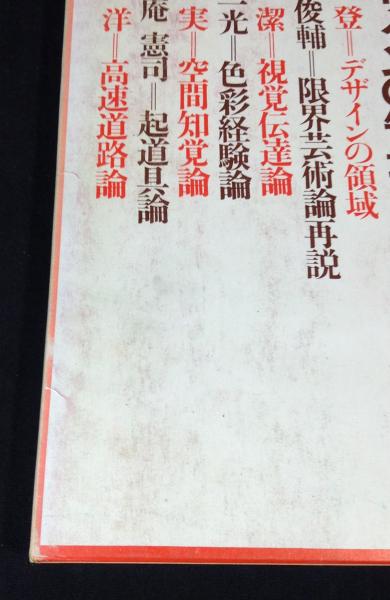 登＝デザインの領域
俊輔＝限界芸術論再説
潔＝視覚伝達論
一光＝色彩経験論
実＝空間知覚論
庵 憲司＝起道具論
洋＝高速道路論